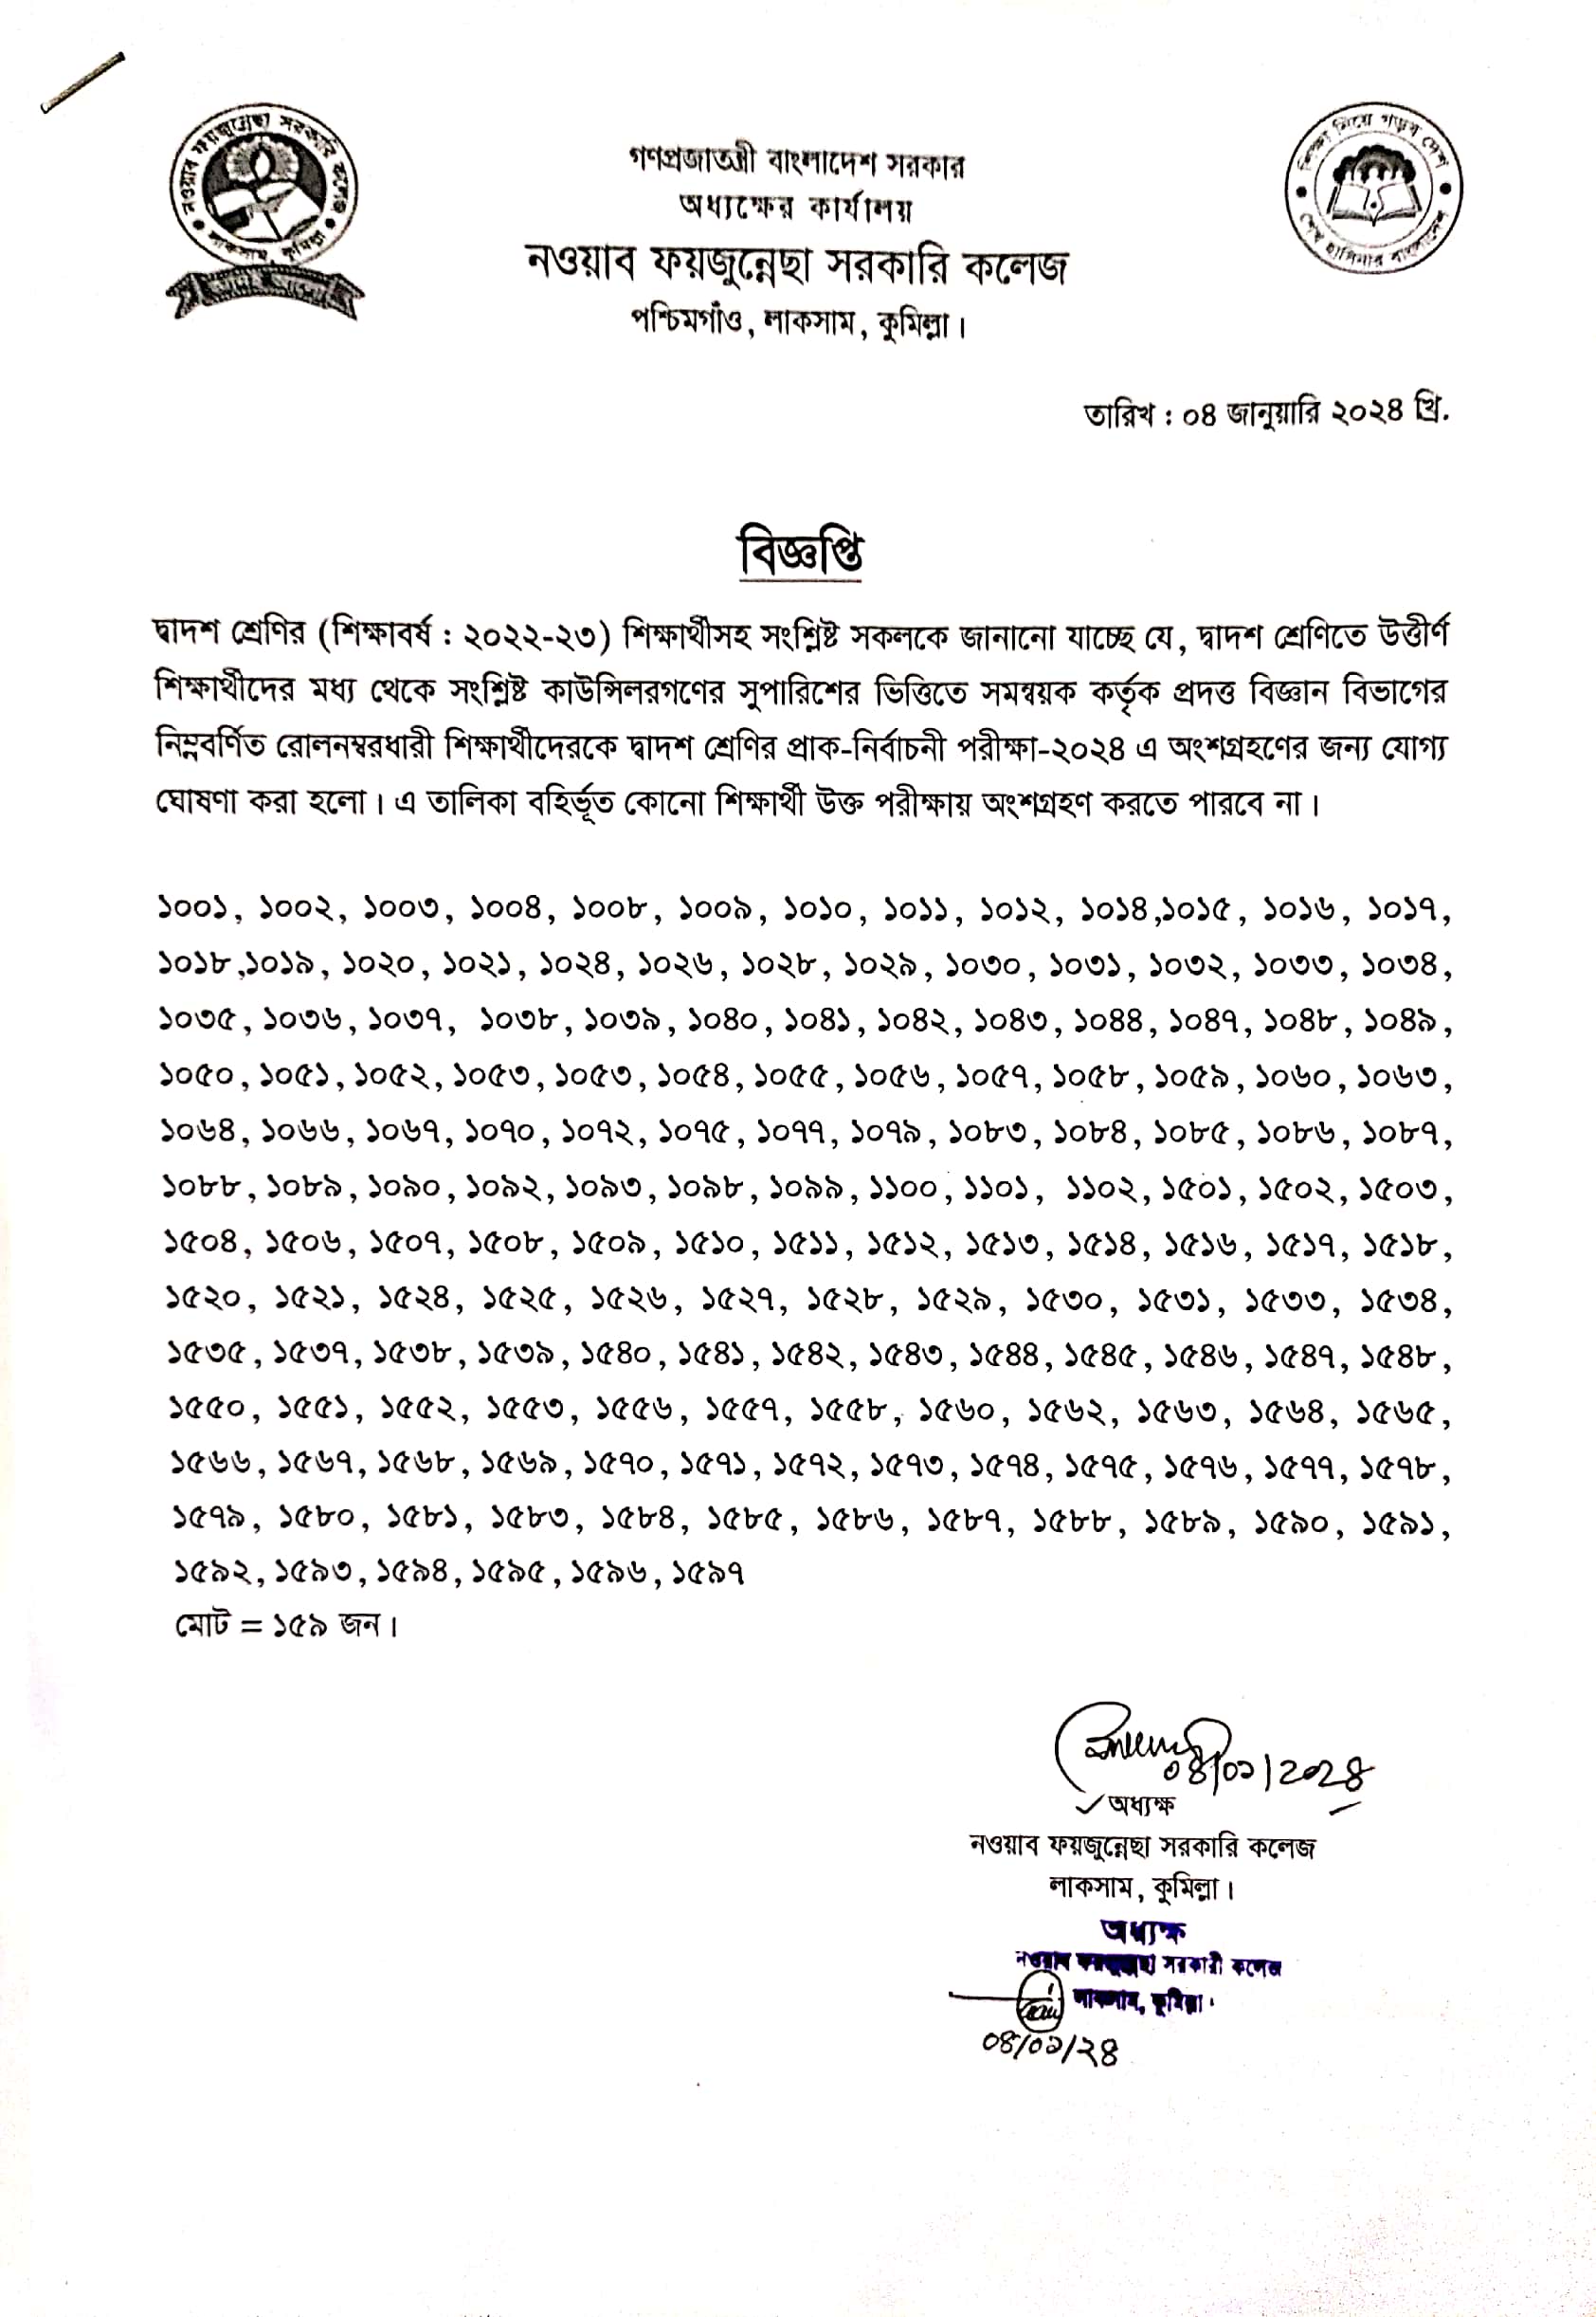 নওয়াব ফয়জুন্নেছা সরকারি কলেজ
লাকসাম, কুমিল্লা
শিক্ষা নিয়ে গড়ব দেশ
শেখ হাসিনার বাংলাদেশ
গণপ্রজাতন্ত্রী বাংলাদেশ সরকার
অধ্যক্ষের কার্যালয়
নওয়াব ফয়জুন্নেছা সরকারি কলেজ
পশ্চিমগাঁও, লাকসাম, কুমিল্লা।
তারিখ : ০৪ জানুয়ারি ২০২৪ খ্রি.
বিজ্ঞপ্তি
দ্বাদশ শ্রেণির (শিক্ষাবর্ষ : ২০২২-২৩) শিক্ষার্থীসহ সংশ্লিষ্ট সকলকে জানানো যাচ্ছে যে, দ্বাদশ শ্রেণিতে উত্তীর্ণ
শিক্ষার্থীদের মধ্য থেকে সংশ্লিষ্ট কাউন্সিলরগণের সুপারিশের ভিত্তিতে সমন্বয়ক কর্তৃক প্রদত্ত বিজ্ঞান বিভাগের
নিম্নবর্ণিত রোলনম্বরধারী শিক্ষার্থীদেরকে দ্বাদশ শ্রেণির প্রাক-নির্বাচনী পরীক্ষা-২০২৪ এ অংশগ্রহণের জন্য যোগ্য
ঘোষণা করা হলো। এ তালিকা বহির্ভূত কোনো শিক্ষার্থী উক্ত পরীক্ষায় অংশগ্রহণ করতে পারবে না।
১০০১, ১০০২, ১০০৩, ১০০৪, ১০০৮, ১০০৯, ১০১০, ১০১১, ১০১২, ১০১৪,১০১৫, ১০১৬, ১০১৭,
১০১৮,১০১৯, ১০২০, ১০২১, ১০২৪, ১০২৬, ১০২৮, ১০২৯, ১০৩০, ১০৩১, ১০৩২, ১০৩৩, ১০৩৪,
১০৩৫, ১০৩৬, ১০৩৭, ১০৩৮, ১০৩৯, ১০৪০, ১০৪১, ১০৪২, ১০৪৩, ১০৪৪, ১০৪৭, ১০৪৮, ১০৪৯,
১০৫০, ১০৫১, ১০৫২, ১০৫৩, ১০৫৩, ১০৫৪, ১০৫৫, ১০৫৬, ১০৫৭, ১০৫৮, ১০৫৯, ১০৬০, ১০৬৩,
১০৬৪, ১০৬৬, ১০৬৭, ১০৭০, ১০৭২, ১০৭৫, ১০৭৭, ১০৭৯, ১০৮৩, ১০৮৪, ১০৮৫, ১০৮৬, ১০৮৭,
১০৮৮, ১০৮৯, ১০৯০, ১০৯২, ১০৯৩, ১০৯৮, ১০৯৯, ১১০০, ১১০১, ১১০২, ১৫০১, ১৫০২, ১৫০৩,
১৫০৪, ১৫০৬, ১৫০৭, ১৫০৮, ১৫০৯, ১৫১০, ১৫১১, ১৫১২, ১৫১৩, ১৫১৪, ১৫১৬, ১৫১৭, ১৫১৮,
১৫২০, ১৫২১, ১৫২৪, ১৫২৫, ১৫২৬, ১৫২৭, ১৫২৮, ১৫২৯, ১৫৩০, ১৫৩১, ১৫৩৩, ১৫৩৪,
১৫৩৫, ১৫৩৭, ১৫৩৮, ১৫৩৯, ১৫৪০, ১৫৪১, ১৫৪২, ১৫৪৩, ১৫৪৪, ১৫৪৫, ১৫৪৬, ১৫৪৭, ১৫৪৮,
১৫৫০, ১৫৫১, ১৫৫২, ১৫৫৩, ১৫৫৬, ১৫৫৭, ১৫৫৮, ১৫৬০, ১৫৬২, ১৫৬৩, ১৫৬৪, ১৫৬৫,
১৫৬৬, ১৫৬৭, ১৫৬৮, ১৫৬৯, ১৫৭০, ১৫৭১, ১৫৭২, ১৫৭৩, ১৫৭৪, ১৫৭৫, ১৫৭৬, ১৫৭৭, ১৫৭৮,
১৫৭৯, ১৫৮০, ১৫৮১, ১৫৮৩, ১৫৮৪, ১৫৮৫, ১৫৮৬, ১৫৮৭, ১৫৮৮, ১৫৮৯, ১৫৯০, ১৫৯১,
১৫৯২, ১৫৯৩, ১৫৯৪, ১৫৯৫, ১৫৯৬, ১৫৯৭
মোট = ১৫৯ জন।
০৪/০১/২০২৪
অধ্যক্ষ
নওয়াব ফয়জুন্নেছা সরকারি কলেজ
লাকসাম, কুমিল্লা।
অধ্যক্ষ
নওয়াব ফয়জুন্নেছা সরকারী কলেজ
লাকসাম, কুমিল্লা।
০৪/০১/২৪